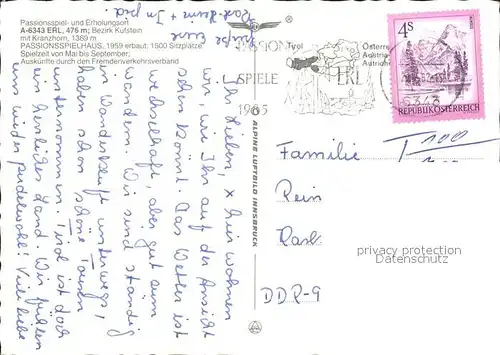 Passionsspiel- und Erholungsort
A-6343 ERL, 476 m; Bezirk Kufstein
mit Kranzhorn, 1369 m
PASSIONSSPIELHAUS, 1959 erbaut; 1500 Sitzplätze
Spielzeit von Mai bis September;
Auskünfte durch den Fremdenverkehrsverband
Tyrol
Österre
Austria
Autrich
PASSION
SPIELE
ERL
1985
4S
REPUBLIK ÖSTERREICH
6343
T 100
Ihr Lieben, x hier wohnen
wir, wie Ihr auf der Ansicht
sehen könnt. Das Wetter ist
wechselhaft, aber gut zum
wandern. Wir sind ständig
in Wanderkluft unterwegs,
haben schon schöne Touren
unternommen. Tirol ist doch
ein herrliches Land. Wir fühlen
uns wieder pudelwohl! Viele liebe
Grüße Eure
ALPINE LUFTBILD INNSBRUCK
Familie
DDR-9
privacy protection
Datenschutz